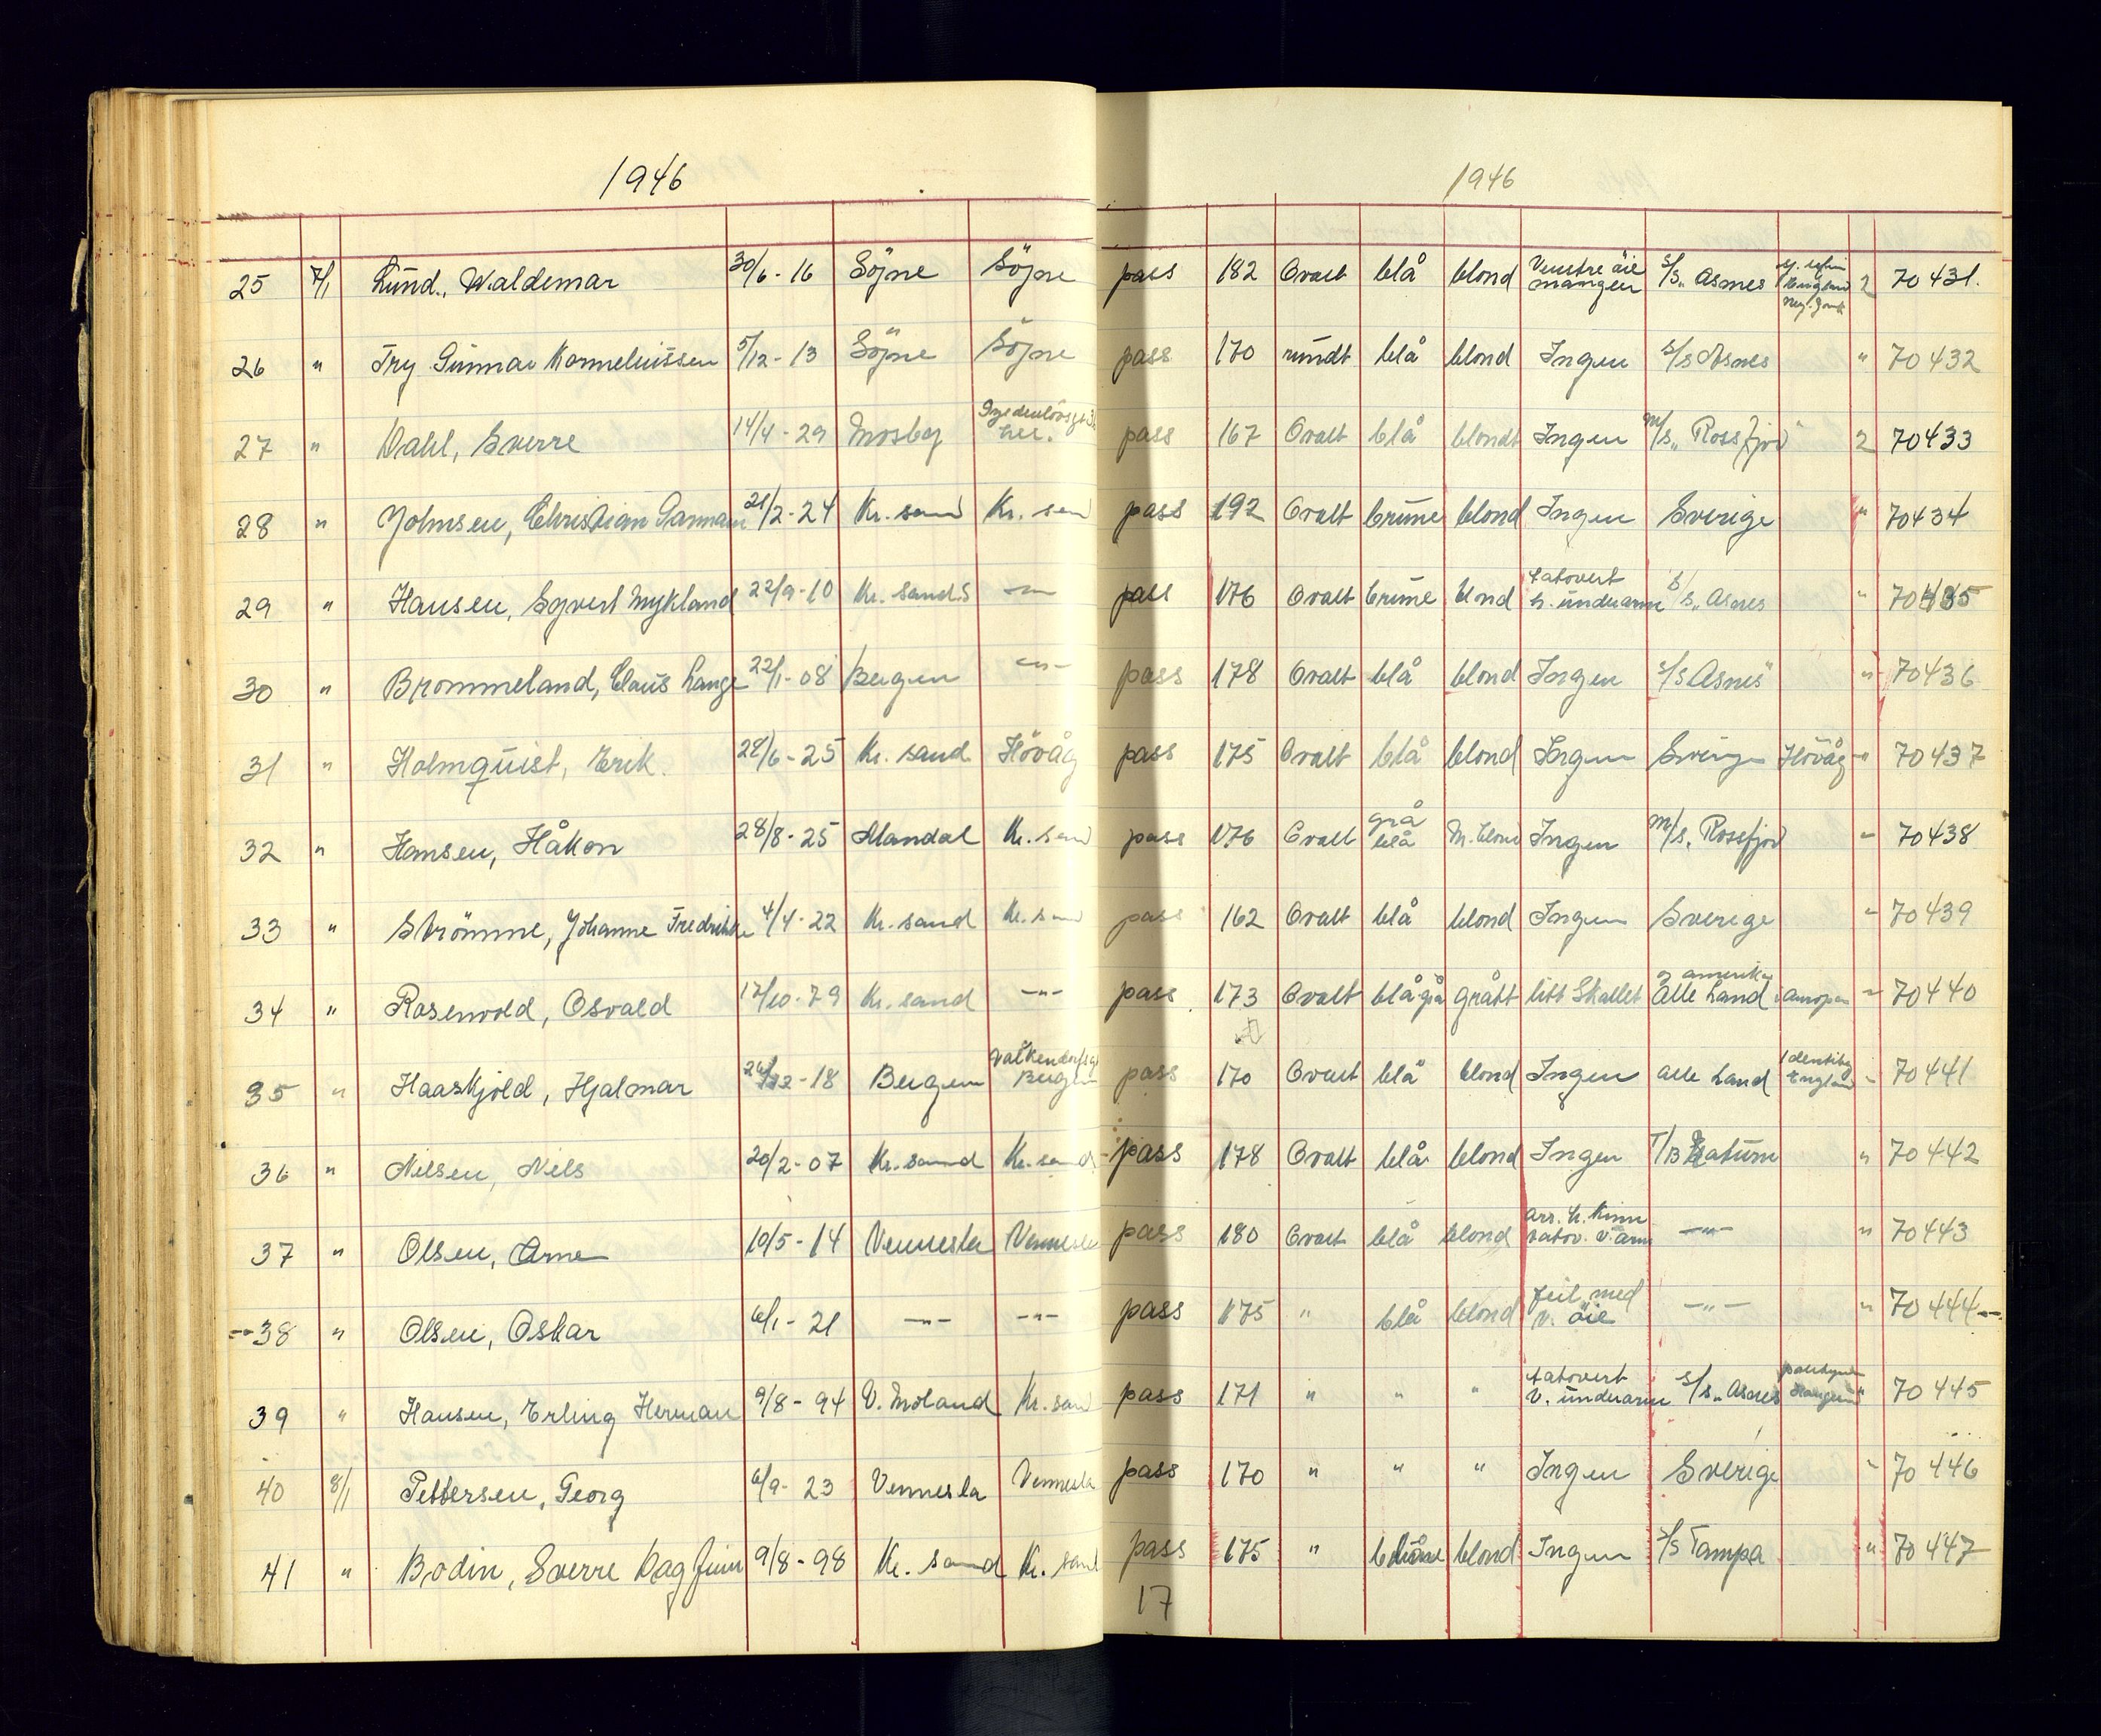 1946 1946
25 7/1 Lund, Waldemar 30/6-16 Söjne Söjne pass 182 Ovalt blå blond Venstre öie mangler s/s „Asnes 2 70431.
26 " Try Gunnar Korneliussen 5/12-13 Söjne Söjne pass 170 rundt blå blond Ingen s/s Asnes " 70432
27 " Dahl, Sverre 14/4-29 Mosby her. pass 167 Ovalt blå blondt Ingen m/s „Rossfjord" 2 70433
28 " Johnsen, Christian 21/2-24 Kr. sand Kr. san pass 192 Ovalt brune blond Ingen Sverige " 70434
29 " Hansen, Syvert Mykland 22/9-10 Kr. sands —"— pass 176 Ovalt brune blond tatovert h. underarm s/s „Asnes " 70435
30 " Brommeland, Claus Lange 22/1-08 Bergen —"— pass 178 Ovalt blå blond Ingen s/s Asnes" " 70436
31 " Holmquist, Erik. 28/6-25 Kr. sand Hövåg pass 175 Ovalt blå blond Ingen Sverige Hövåg " 70437
32 " Hansen, Håkon 28/8-25 Mandal Kr. san pass 176 Ovalt grå blå M. blond Ingen m/s. Rossfjord " 70438
33 " Strömme, Johanne Fredrikke 4/4-22 Kr. sand Kr. san pass 162 Ovalt blå blond Ingen Sverige " 70439
34 " Rosenvold, Osvald 17/10-79 Kr. sand —"— pass 173 Ovalt blågrå grått litt Skallet alle land i amerika " 70440
35 " Haaskjold, Hjalmar 12-18 Bergen Valkendorfsgt Bergen pass 170 Ovalt blå blond Ingen alle land England " 70441
36 " Nilsen, Nils 20/2-07 Kr. sand Kr. sand pass 178 Ovalt blå blond Ingen T/B " 70442
37 " Olsen, Arne 10/5-14 Vennesla Vennesla pass 180 Ovalt blå blond arr. h. kinn tatov. v. arm —"— " 70443
38 " Olsen, Oskar 6/1-21 —"— —"— pass 175 " blå blond feil med v. öie —"— " 70444
39 " Hansen, Erling Herman 9/8-94 V. Moland Kr. san pass 171 " " " tatovert v. underarm s/s „Asnes " 70445
40 8/1 Pettersen, Georg 6/9-23 Vennesla Vennesla pass 170 " " " Ingen Sverige " 70446
41 " Bodin, Sverre Dagfinn 9/8-98 Kr. sand Kr. sand pass 175 " blond Ingen s/s Tampa " 70447
17